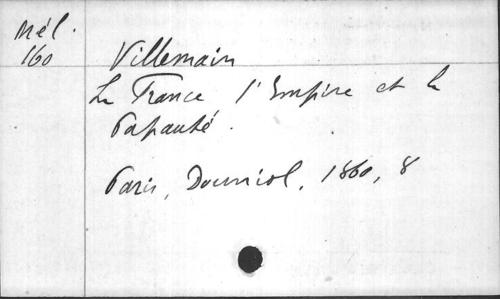 Mél.
160
Villemain
La France l'Empire et la
Papauté.
Paris, Douniol, 1860, 8